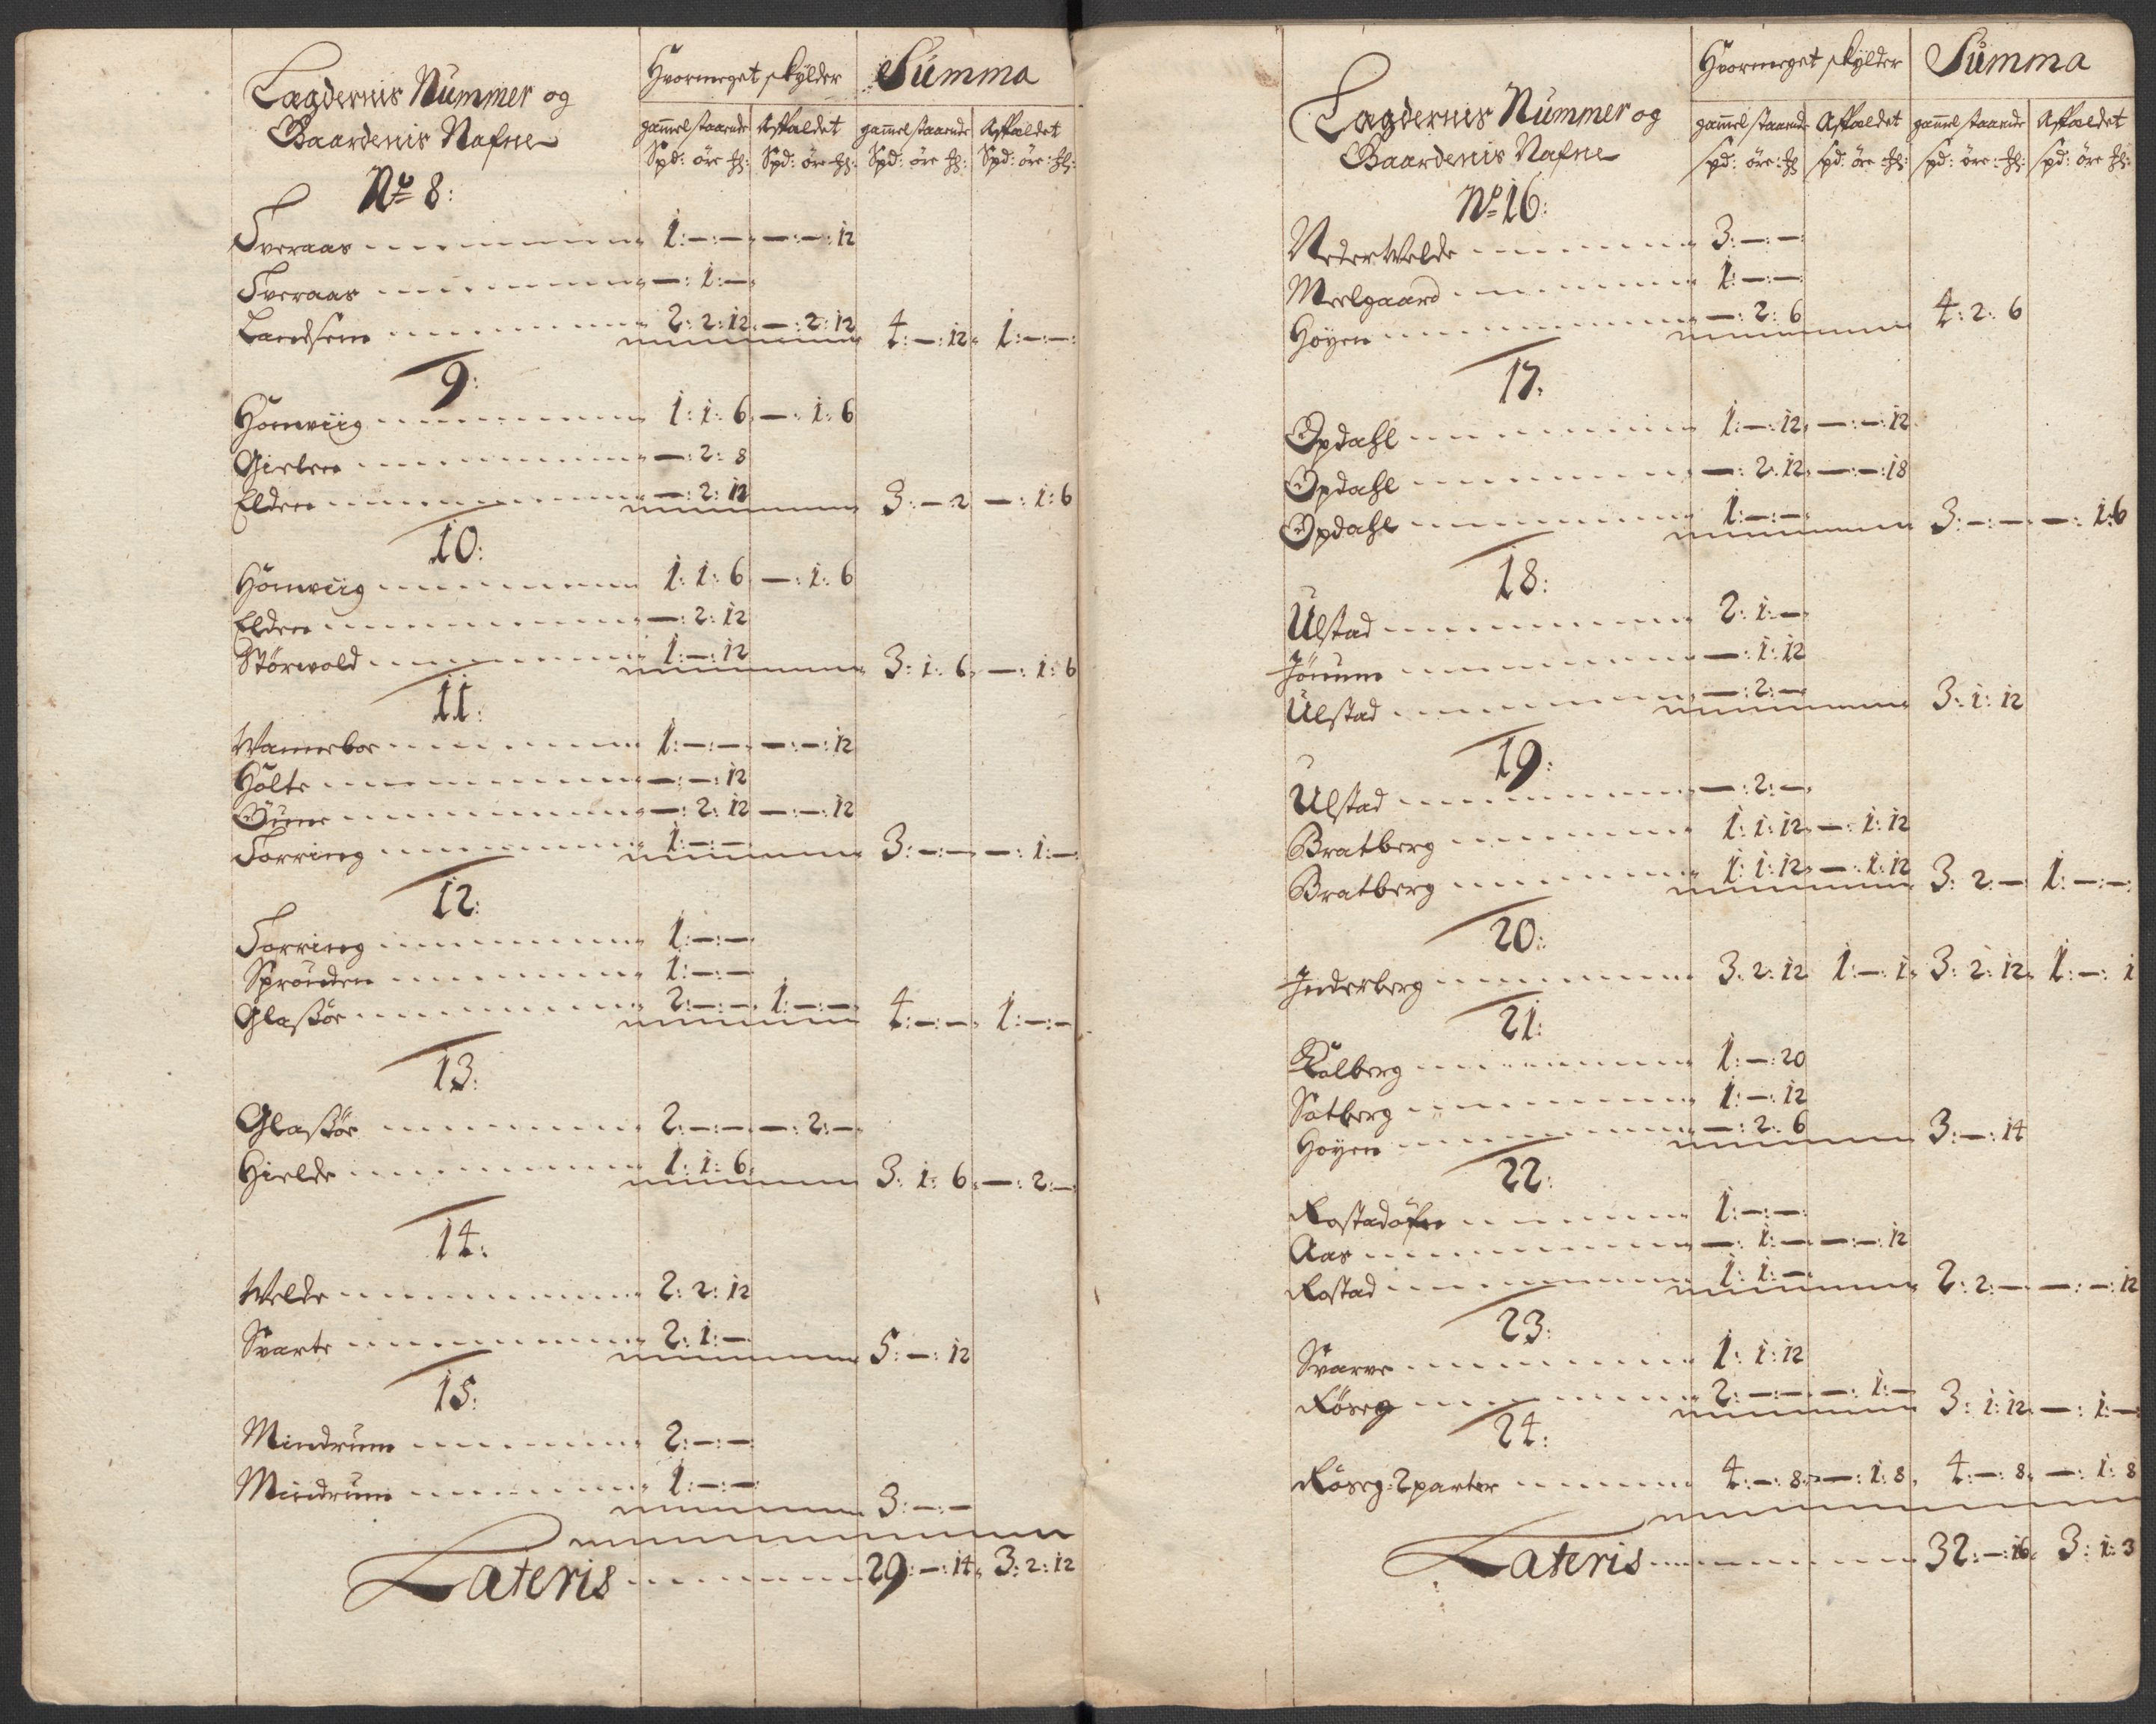 Lægdernis Nummer og
Gaardenis Nafne
Hvormeget skylder
Summa
gam̄elstaarende Affældet gam̄elstaarende Affældet
Spd: öre: Spd: öre Spd: öre Spd: öre:
No 8:
Sveraas 1:—:— —:—:12
Sveraas —:1:—
Landsem 2:2:12 —:2:12 4:—:12 1:—:—
9:
Homviig 1:1:6 —:1:6
Gielen —:2:8
Elden —:2:12 3:—2 —:1:6
10:
Homviig 1:1:6 —:1:6
Elden —:2:12
Störvold 1:—:12 3:1:6 —:1:6
11:
Wanneboe 1:—:— —:—:12
Holte —:—:12
Öune —:2:12 —:—:12
Torring 1:—:— 3:—:— —:1:—
12:
Torring 1:—:—
Sprouden 1:—:—
Glasöe 2:—:— 1:—:— 4:—:— 1:—:—
13:
Glasöe 2:—:— —:2:—
Hielde 1:1:6 3:1:6 —:2:—
14:
Welde 2:2:12
Svarte 2:1:— 5:—:12
15:
Mindrum 2:—:—
Mindrum 1:—:— 3:—:—
Lateris 29:—:14 3:2:12
Lægdernis Nummer og
Gaardenis Nafne
Hvormeget skylder
Summa
gam̄elstaarende Affældet gam̄elstaarende Affældet
spd: öre: spd: öre spd: öre: spd: öre
No 16:
Neder Welde 3:—:—
Meelgaard 1:—:—
Höyen —:2:6 4:2:6
17:
Opdahl 1:—:12 —:—:12
Opdahl —:2:12 —:—:18
Opdahl 1:—:— 3:—:— —:1:6
18:
Ulstad 2:1:—
Jörum —:1:12
Ulstad —:2:— 3:1:12
19:
Ulstad —:2:—
Bratberg 1:1:12 —:1:12
Bratberg 1:1:12 —:1:12 3:2:— 1:—:—
20:
Inderberg 3:2:12 1:—:1 3:2:12 1:—:1
21:
Kolberg 1:—:20
Satberg 1:—:12
Hoyen —:2:6 3:—:14
22:
Rostad 1:—:—
Aas —:1:— —:—:12
Rostad 1:1:— 2:2:— —:—:12
23:
Svarve 1:1:12
Röseg 2:—:— —:1:— 3:1:12 —:1:—
24:
Röseg: 2 parter 4:—:8 —:1:8 4:—:8 —:1:8
Lateris 32:—:16 3:1:3